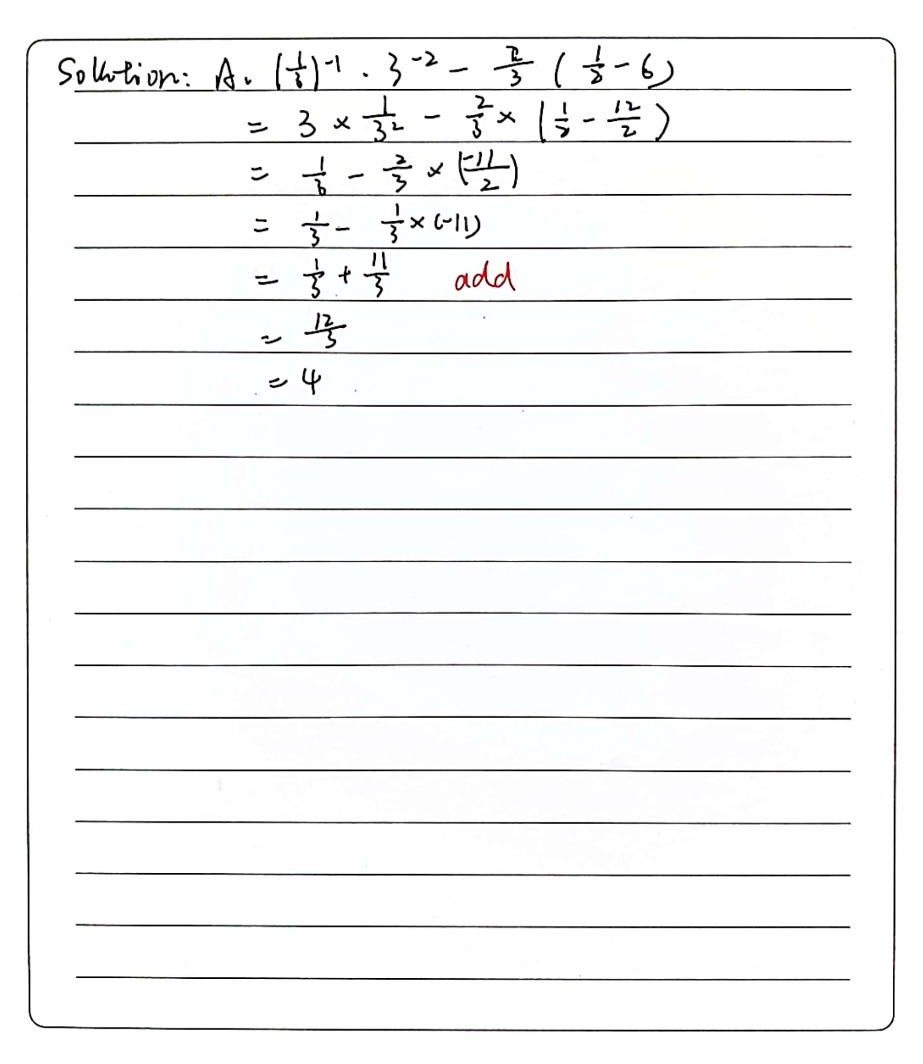 Solution: A. (1/3)^-1 · 3^-2 - 2/3 (1/2 - 6)
= 3 × 1/3^2 - 2/3 × (1/2 - 12/2)
= 1/3 - 2/3 × (-11/2)
= 1/3 - 1/3 × (-11)
= 1/3 + 11/3 add
= 12/3
= 4